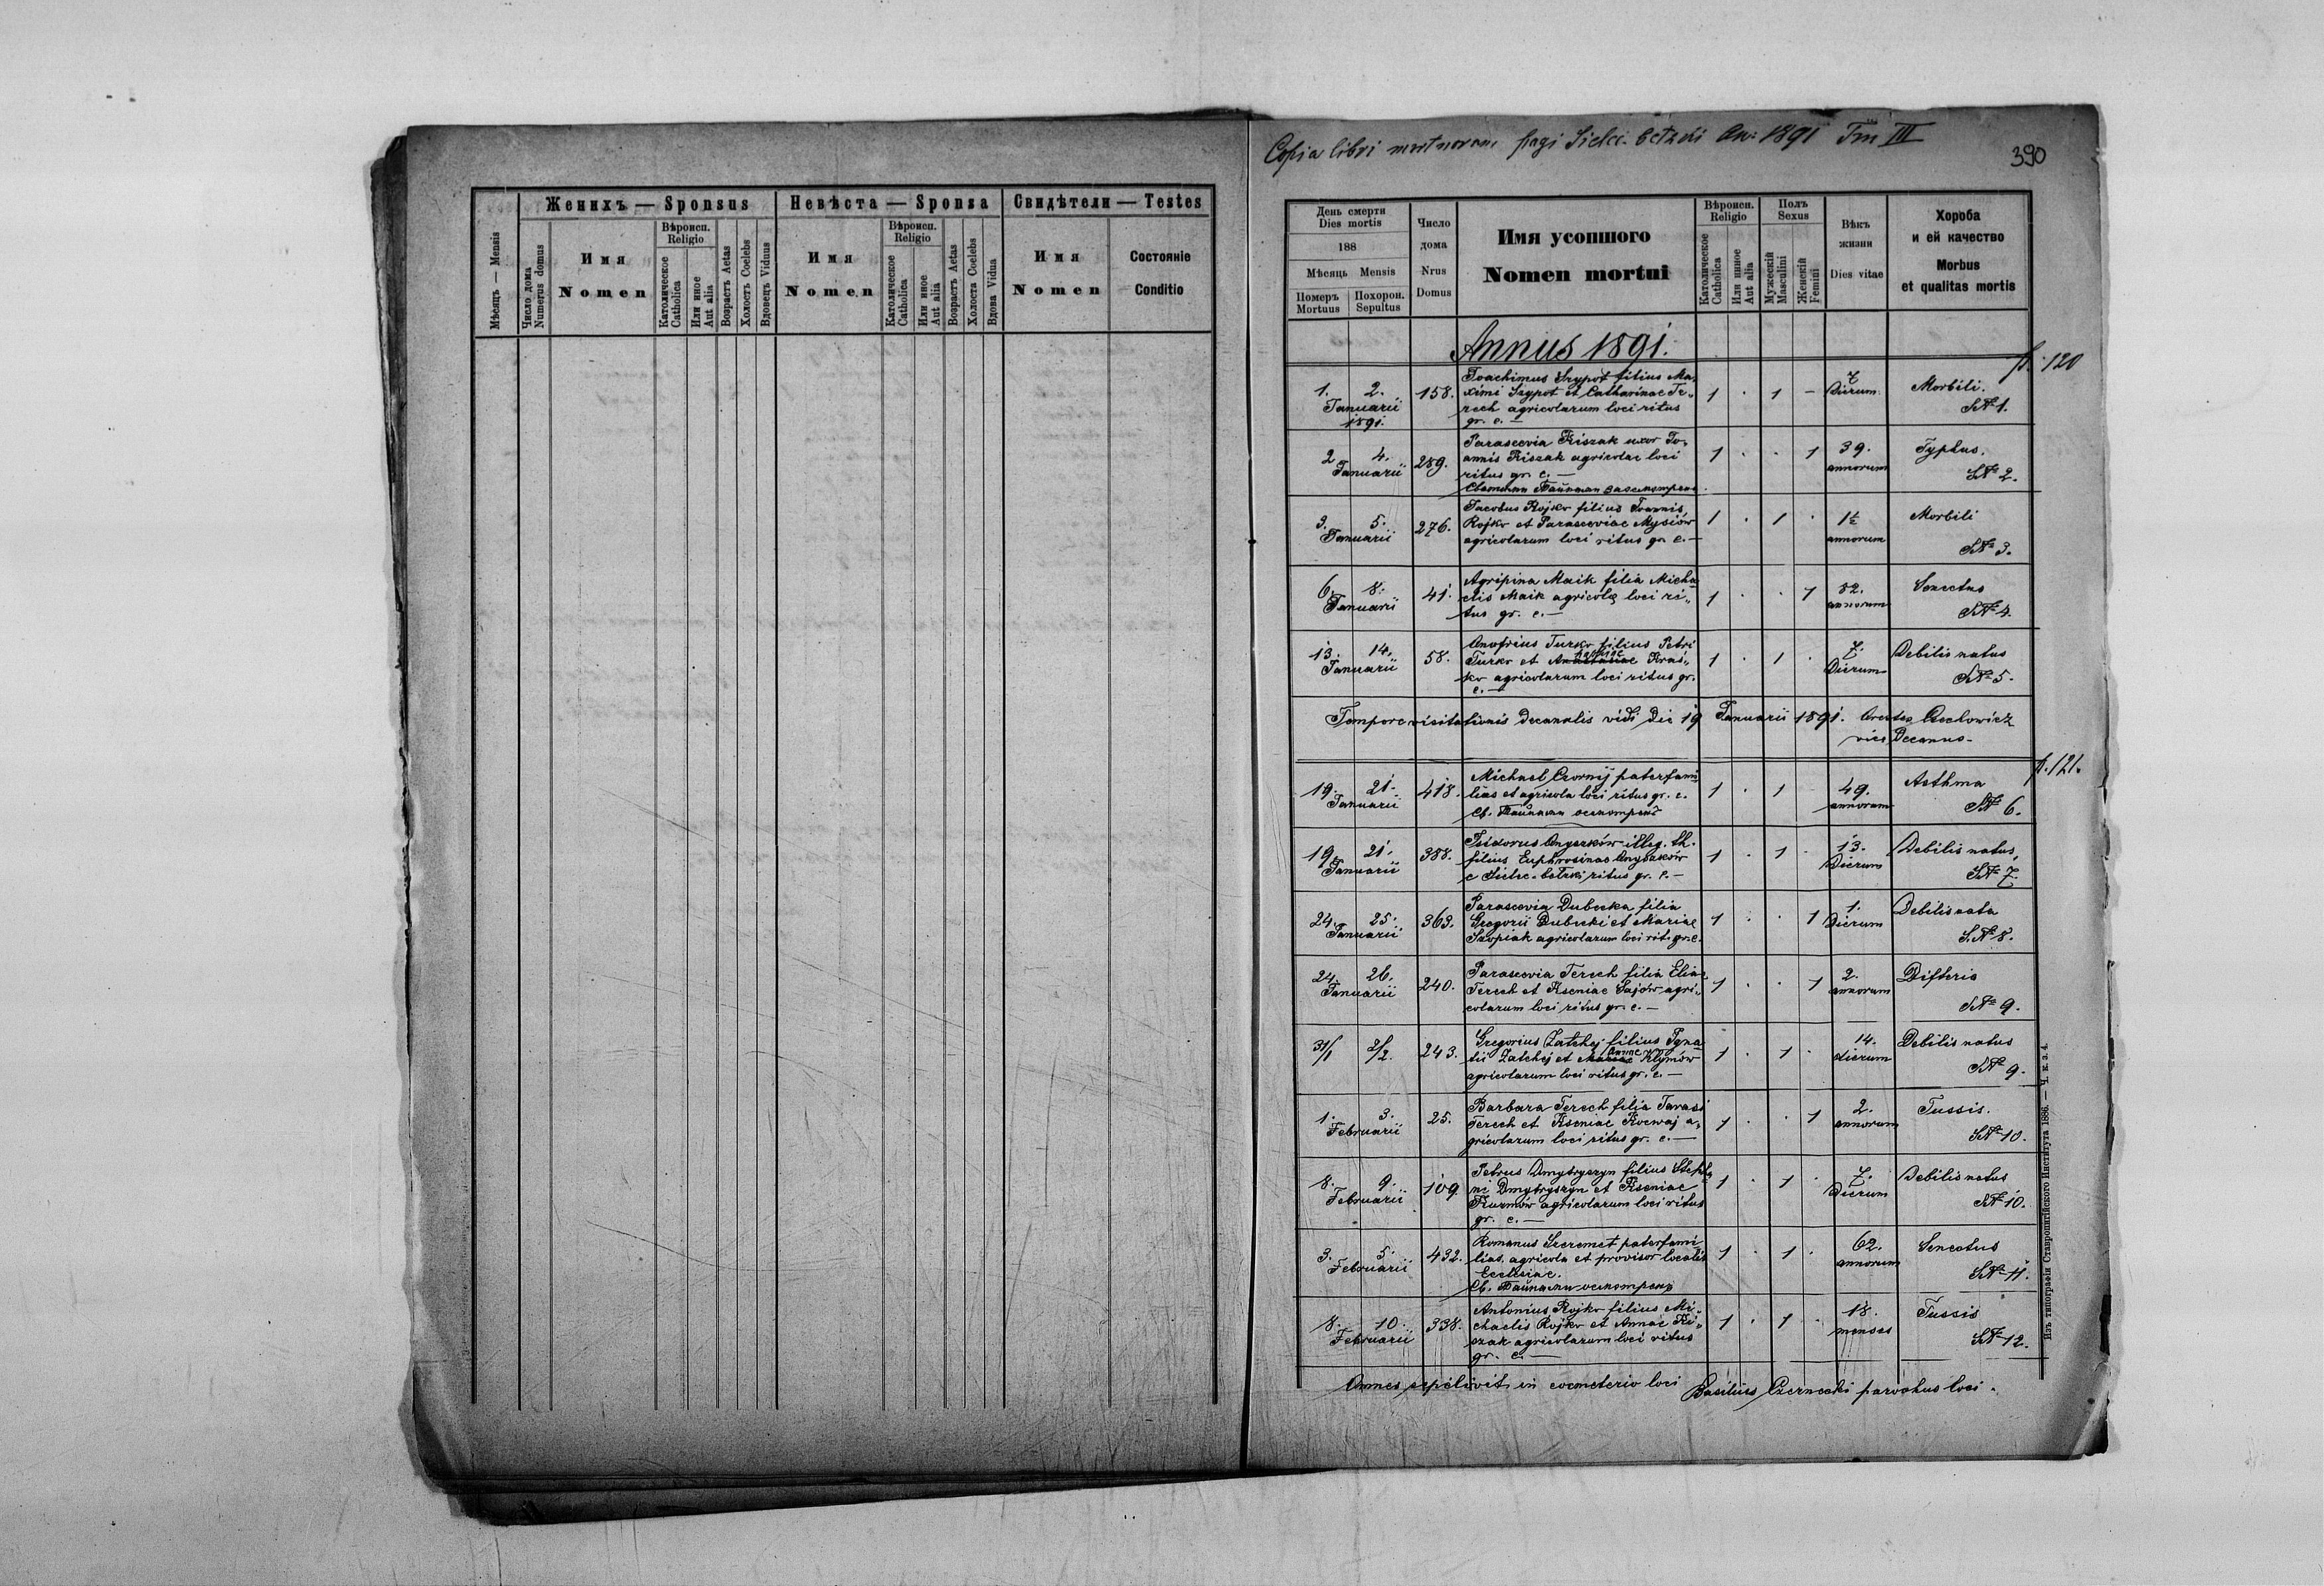 Женихъ — Sponsus
Невѣста — Sponsa
Свидѣтели — Testes
Мѣсяцъ — Mensis
Число дома
Numerus domus
Имя
Nomen
Вѣроисп.
Religio
Католическое
Catholica
Или иное
Aut alia
Возрастъ Aetas
Холостъ Coelebs
Вдовецъ Viduus
Имя
Nomen
Вѣроисп.
Religio
Католическое
Catholica
Или иное
Aut alia
Возрастъ Aetas
Холоста Coelebs
Вдова Vidua
Имя
Nomen
Состояніе
Conditio
Copia libri mortuorum pagi Sielec bełzki An: 1891 Tm III
390
День смерти
Dies mortis
188
Мѣсяць Mensis
Померъ
Mortuus
Похорон.
Sepultus
Число
дома
Nrus
Domus
Имя усопшого
Nomen mortui
Вѣроисп.
Religio
Католическое
Catholica
Или иное
Aut alia
Полъ
Sexus
Мужескій
Masculini
Женскій
Femini
Вѣкъ
жизни
Dies vitae
Хороба
и ей качество
Morbus
et qualitas mortis
Annus 1891.
p. 120
1. 2.
Januarii
1891.
158.
Joachimus Szypot filius Ma„
ximi Szypot et Catharinae Te„
rech agricolarum loci ritus
gr. c. —
1 . 1 –
7
Dierum
Morbili.
SN 1.
2 4.
Januarii
289.
Parascevia Kiszak uxor Jo„
annis Kiszak agricolae loci
ritus gr. c. —
1 . . 1
39.
annorum
Typhus.
SN 2.
3. 5.
Januarii
276.
Jacobus Rojko filius Joannis
Rojko et Parasceviae Mysiów
agricolarum loci ritus gr. c. —
1 . 1 .
1½
annorum
Morbili
SN 3.
6. 8.
Januarii
41.
Agripina Maik filia Micha
elis Maik agricolę loci ri„
tus gr. c. —
1 . . 1
82.
annorum
Senectus
SN 4.
13. 14.
Januarii
58.
Onofrius Turko filius Petri
Turko et Anastasiae Kraś„
ko agricolarum loci ritus gr.
c. —
1 . 1 .
7.
Dierum
Debilis natus
SN 5.
Tempore visitationis decanalis vidi die 19 Januarii 1891. Orestes Czechowicz
vice Decanus.
p. 121.
19. 21.
Januarii
418.
Michael Czornij paterfami
lias et agricola loci ritus gr. c.
1 . 1
49.
annorum
Asthma
SN 6.
19. 21.
Januarii
388.
Isidorus Onyszków illeg. th.
filius Euphrosinae Onyszków
e Sielec-bełzki ritus gr. c. —
1 . 1 .
13.
Dierum
Debilis natus,
SN 7.
24. 25.
Januarii
363.
Parascevia Dubecka filia
Gregorii Dubecki et Mariae
Szopiak agricolarum loci rit. gr. c.
1 . . 1
1.
Dierum
Debilis nata
SN 8.
24. 26.
Januarii
240.
Parascevia Terech filia Eliae
Terech et Kseniae Sajów agri„
colarum loci ritus gr. c. —
1 . . 1
2.
annorum
Difteris
SN 9.
31/1 2/2.
243.
Gregorius Zatchej filius Igna
tii Zatchej et Mariae Annae Klymów
agricolarum loci ritus gr. c. —
1 . 1 .
14.
dierum
Debilis natus
SN 9.
1. 3.
Februarii
25.
Barbara Terech filia Tarasi
Terech et Kseniae Kocwaj a„
gricolarum loci ritus gr. c. —
1 . . 1
2.
annorum
Tussis.
SN 10.
8. 9.
Februarii
109
Petrus Dmytryszyn filius Stepha
ni Dmytryszyn et Kseniae
Kuzmów agricolarum loci ritus
gr. c. —
1 . 1 .
7.
Dierum
Debilis natus
SN 10.
3. 5.
Februarii
432.
Romanus Szeremet paterfami
lias, agricola et provisor localis
Ecclesiae.
1 . 1 .
62.
annorum
Senectus
SN 11.
8. 10.
Februarii
338.
Antonius Rojko filius Mi„
chaelis Rojko et Annae Ki„
szak agricolarum loci ritus
gr. c. —
1 . 1 .
18.
menses
Tussis
SN 12.
Omnes sepelivit in coemeterio loci Basilius Czernecki parochus loci.
Изъ типографіи Ставропигійского Института 1886. — Ч. к. з. 4.